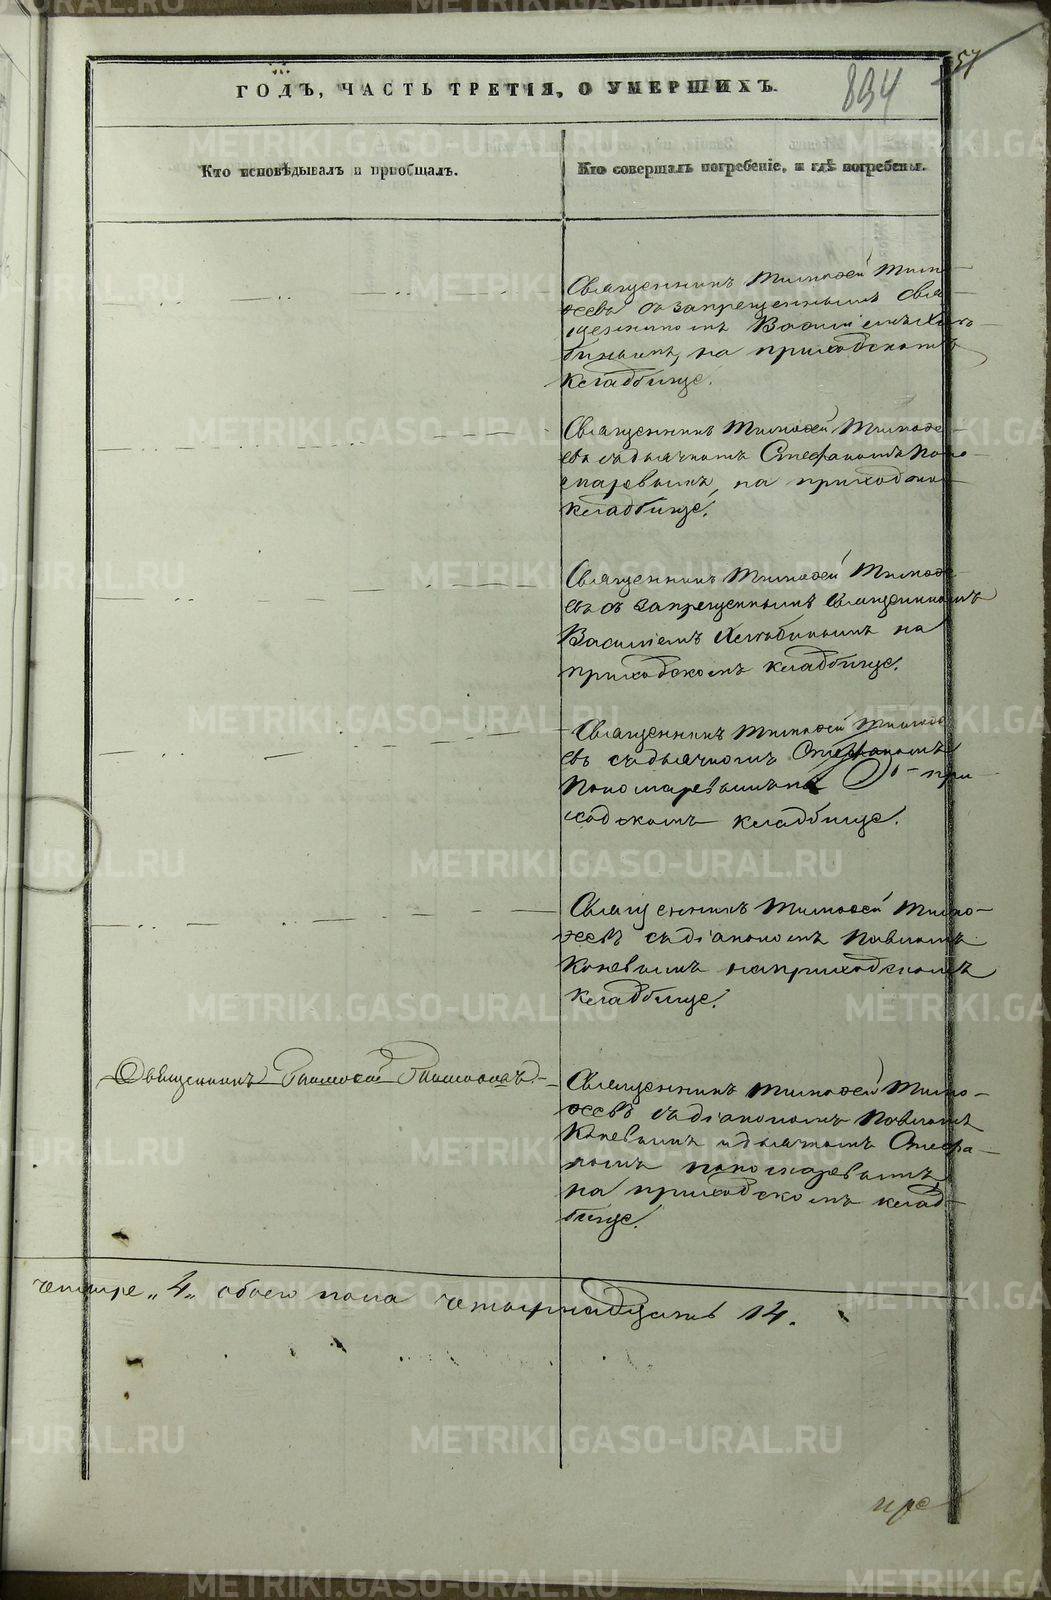 57
894
ГОДЪ, ЧАСТЬ ТРЕТІЯ, О УМЕРШИХЪ.
Кто исповѣдывалъ и пріобщалъ.
Кто совершалъ погребеніе, и гдѣ погребены.
Священникъ Тимофей Тимо-
феевъ съ запрещеннымъ свя-
щенникомъ Василіемъ Хлѣ-
бинымъ, на приходскомъ
кладбище.
Священникъ Тимофей Тимофе-
евъ съ дьячкомъ Стефаномъ Поно-
маревымъ, на приходском
кладбище.
Священникъ Тимофей Тимофе-
евъ съ запрещеннымъ священникомъ
Василіемъ Хлѣбинымъ на
приходскомъ кладбище.
Священникъ Тимофей Тимофе
евъ съ дьячкомъ Стефаномъ
Пономаревымъ на при-
ходскомъ кладбище.
Священникъ Тимофей Тимо-
феевъ съ діакономъ Павломъ
Коневымъ на приходскомъ
кладбище.
Священникъ Тимофей Тимофеевъ.
Священникъ Тимофей Тимо-
феевъ съ діакономъ Павломъ
Коневымъ и дьячкомъ Стефа-
номъ Пономаревымъ,
на приходскомъ клад-
бище.
четыре „4„ обоего пола четырнадцать 14.
METRIKI.GASO-URAL.RU